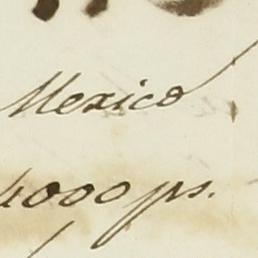 Mexico
4000 ps.